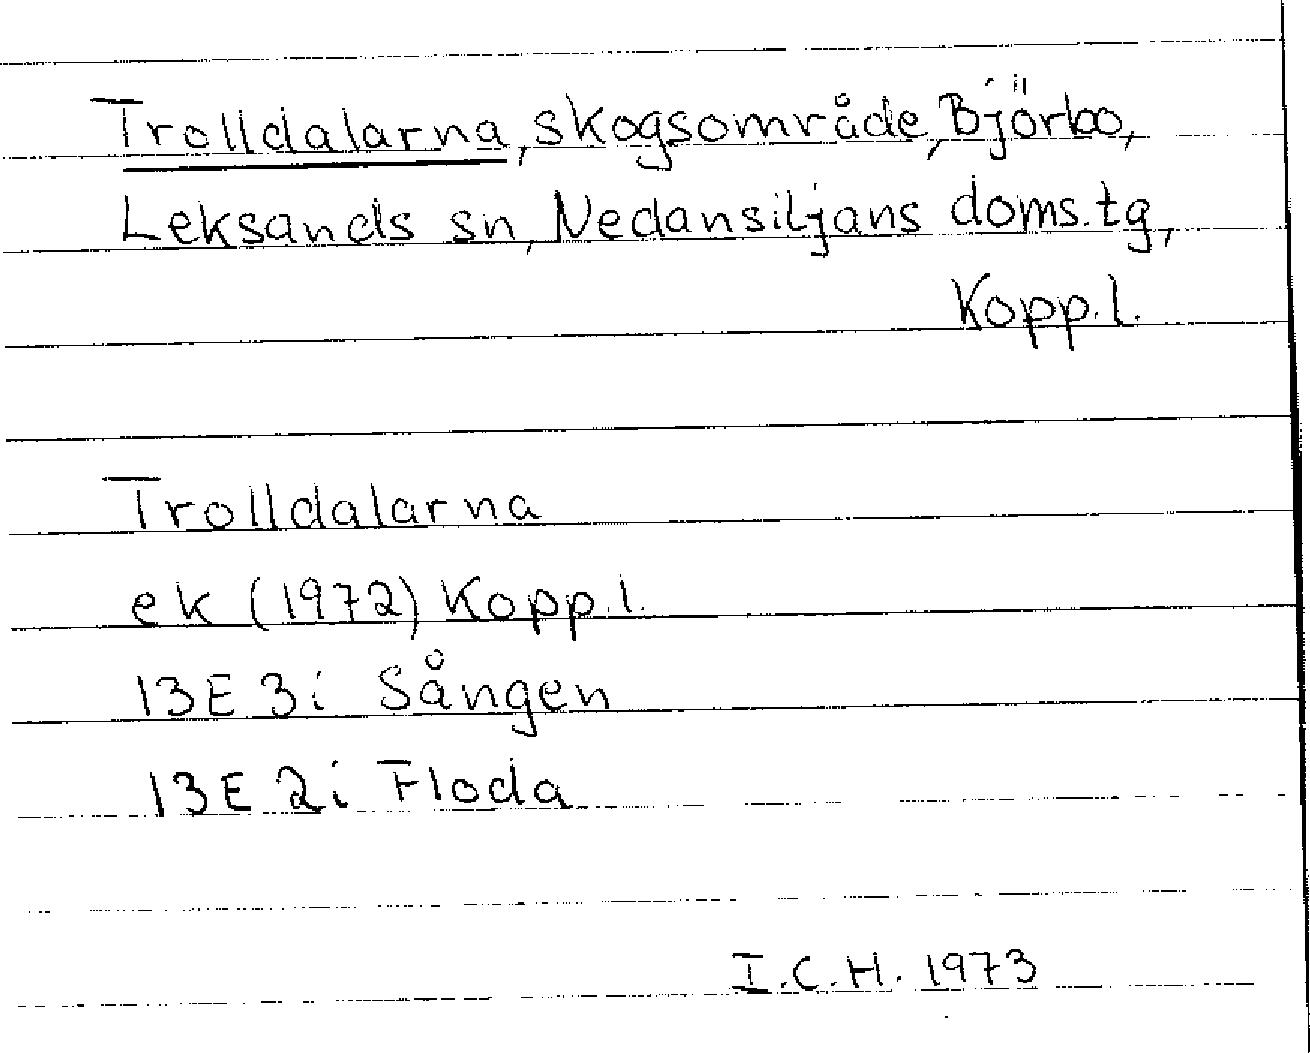 Trolldalarna, skogsområde, Björbo,
Leksands sn, Nedansiljans doms.tg,
Kopp.l.
Trolldalarna
ek (1972) Kopp.l.
13E 3i Sången
13E 2i Floda
I.C.H. 1973